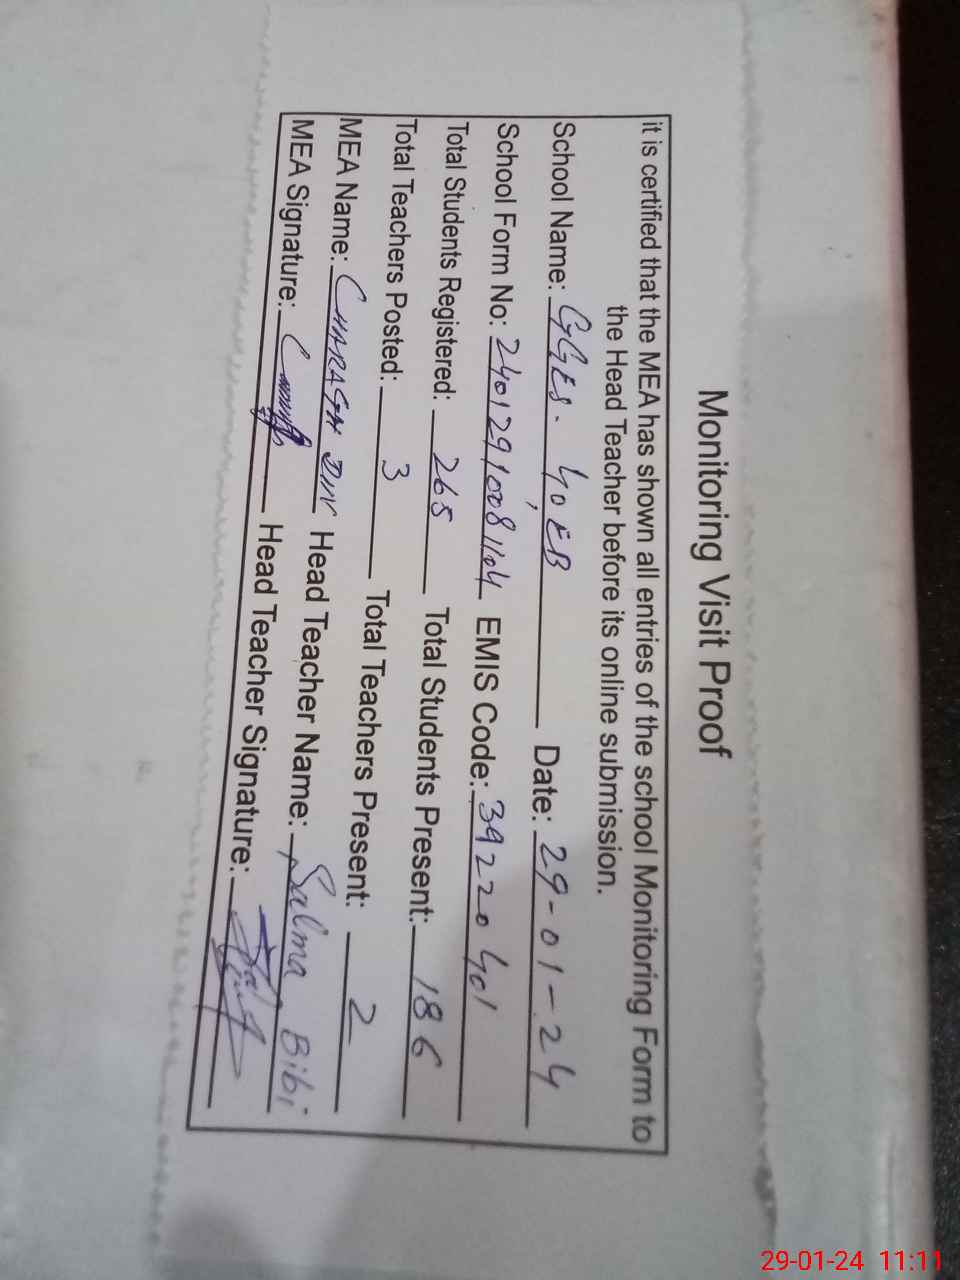 Monitoring Visit Proof
it is certified that the MEA has shown all entries of the school Monitoring Form to
the Head Teacher before its online submission.
School Name: GGES. 40 EB Date: 29-01-24
School Form No: 24012910081104 EMIS Code: 39220401
Total Students Registered: 265 Total Students Present: 186
Total Teachers Posted: 3 Total Teachers Present: 2
MEA Name: CHARAGH DIN Head Teacher Name: Salma Bibi
MEA Signature: Head Teacher Signature:
29-01-24 11:11